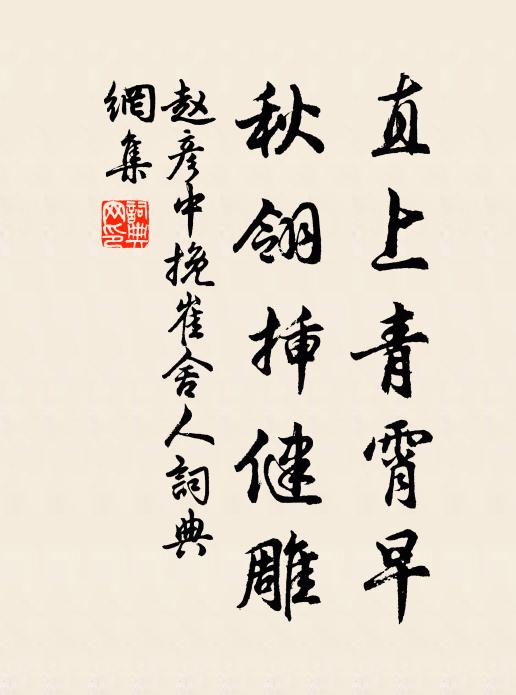 直上青霄早
秋翎插健雕
赵彦中挽崔舍人詞典
網集
詞典網印